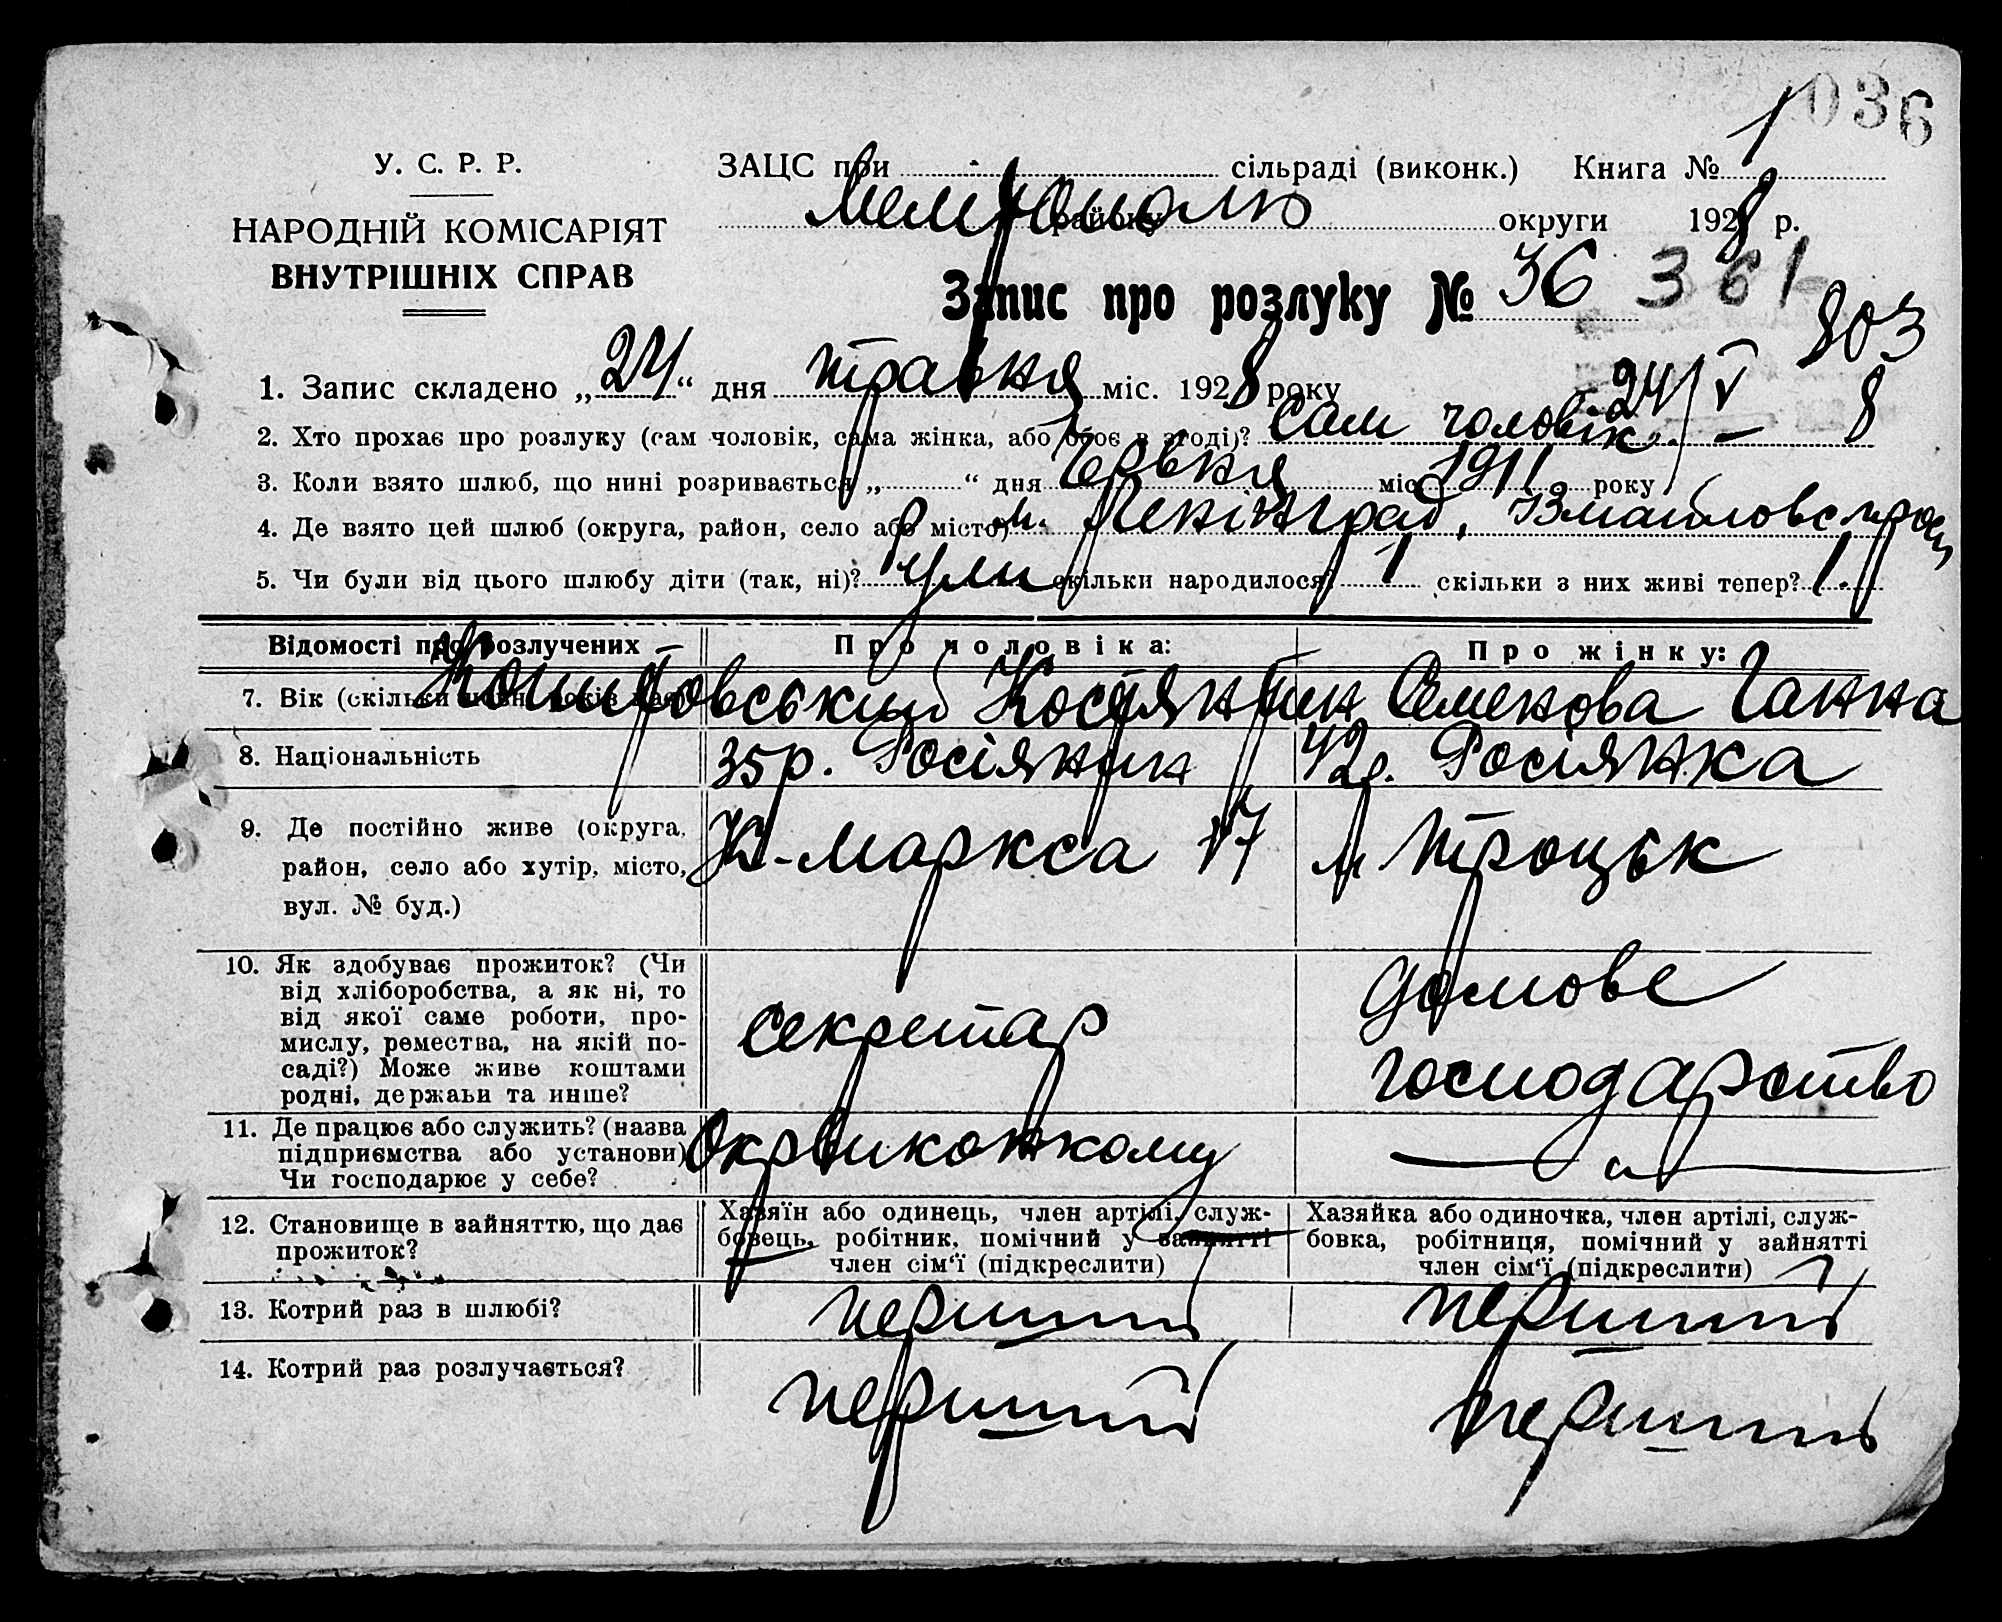 1036
У. С. Р. Р.
НАРОДНІЙ КОМІСАРІЯТ
ВНУТРІШНІХ СПРАВ
ЗАЦС при сільраді (виконк.) Книга № 1
Мелітополю району округи 1928 р.
Запис про розлуку № 36 361
803
1. Запис складено „24“ дня травня міс. 1928 року
24/V – 8
2. Хто прохає про розлуку (сам чоловік, сама жінка, або обоє в згоді)? Сам чоловік
3. Коли взято шлюб, що нині розривається „ “ дня Червня міс. 1911 року
4. Де взято цей шлюб (округа, район, село або місто) м. Ленінград,
5. Чи були від цього шлюбу діти (так, ні)? скільки народилося? 1 скільки з них живі тепер? 1
Відомості про розлучених Про чоловіка: Про жінку:
7. Вік (скільки повн. років має) Костянтин Семенова Ганна
8. Національність 35р. Росіянин 42р. Росіянка
9. Де постійно живе (округа, район, село або хутір, місто, вул. № буд.)
К-Маркса 17
м Троцьк
10. Як здобуває прожиток? (Чи
від хліборобства, а як ні, то
від якої саме роботи, про-
мислу, ремества, на якій по-
саді?) Може живе коштами
родні, держави та инше?
секретар
домове
господарство
11. Де працює або служить? (назва
підприємства або установи)
Чи господарює у себе?
Окрвиконкому
12. Становище в зайняттю, що дає
прожиток?
Хазяїн або одинець, член артілі, служ-
бовець, робітник, помічний у зайнятті
член сім‘ї (підкреслити)
Хазяйка або одиночка, член артілі, служ-
бовка, робітниця, помічний у зайнятті
член сім‘ї (підкреслити)
13. Котрий раз в шлюбі? перший перший
14. Котрий раз розлучається? перший перший